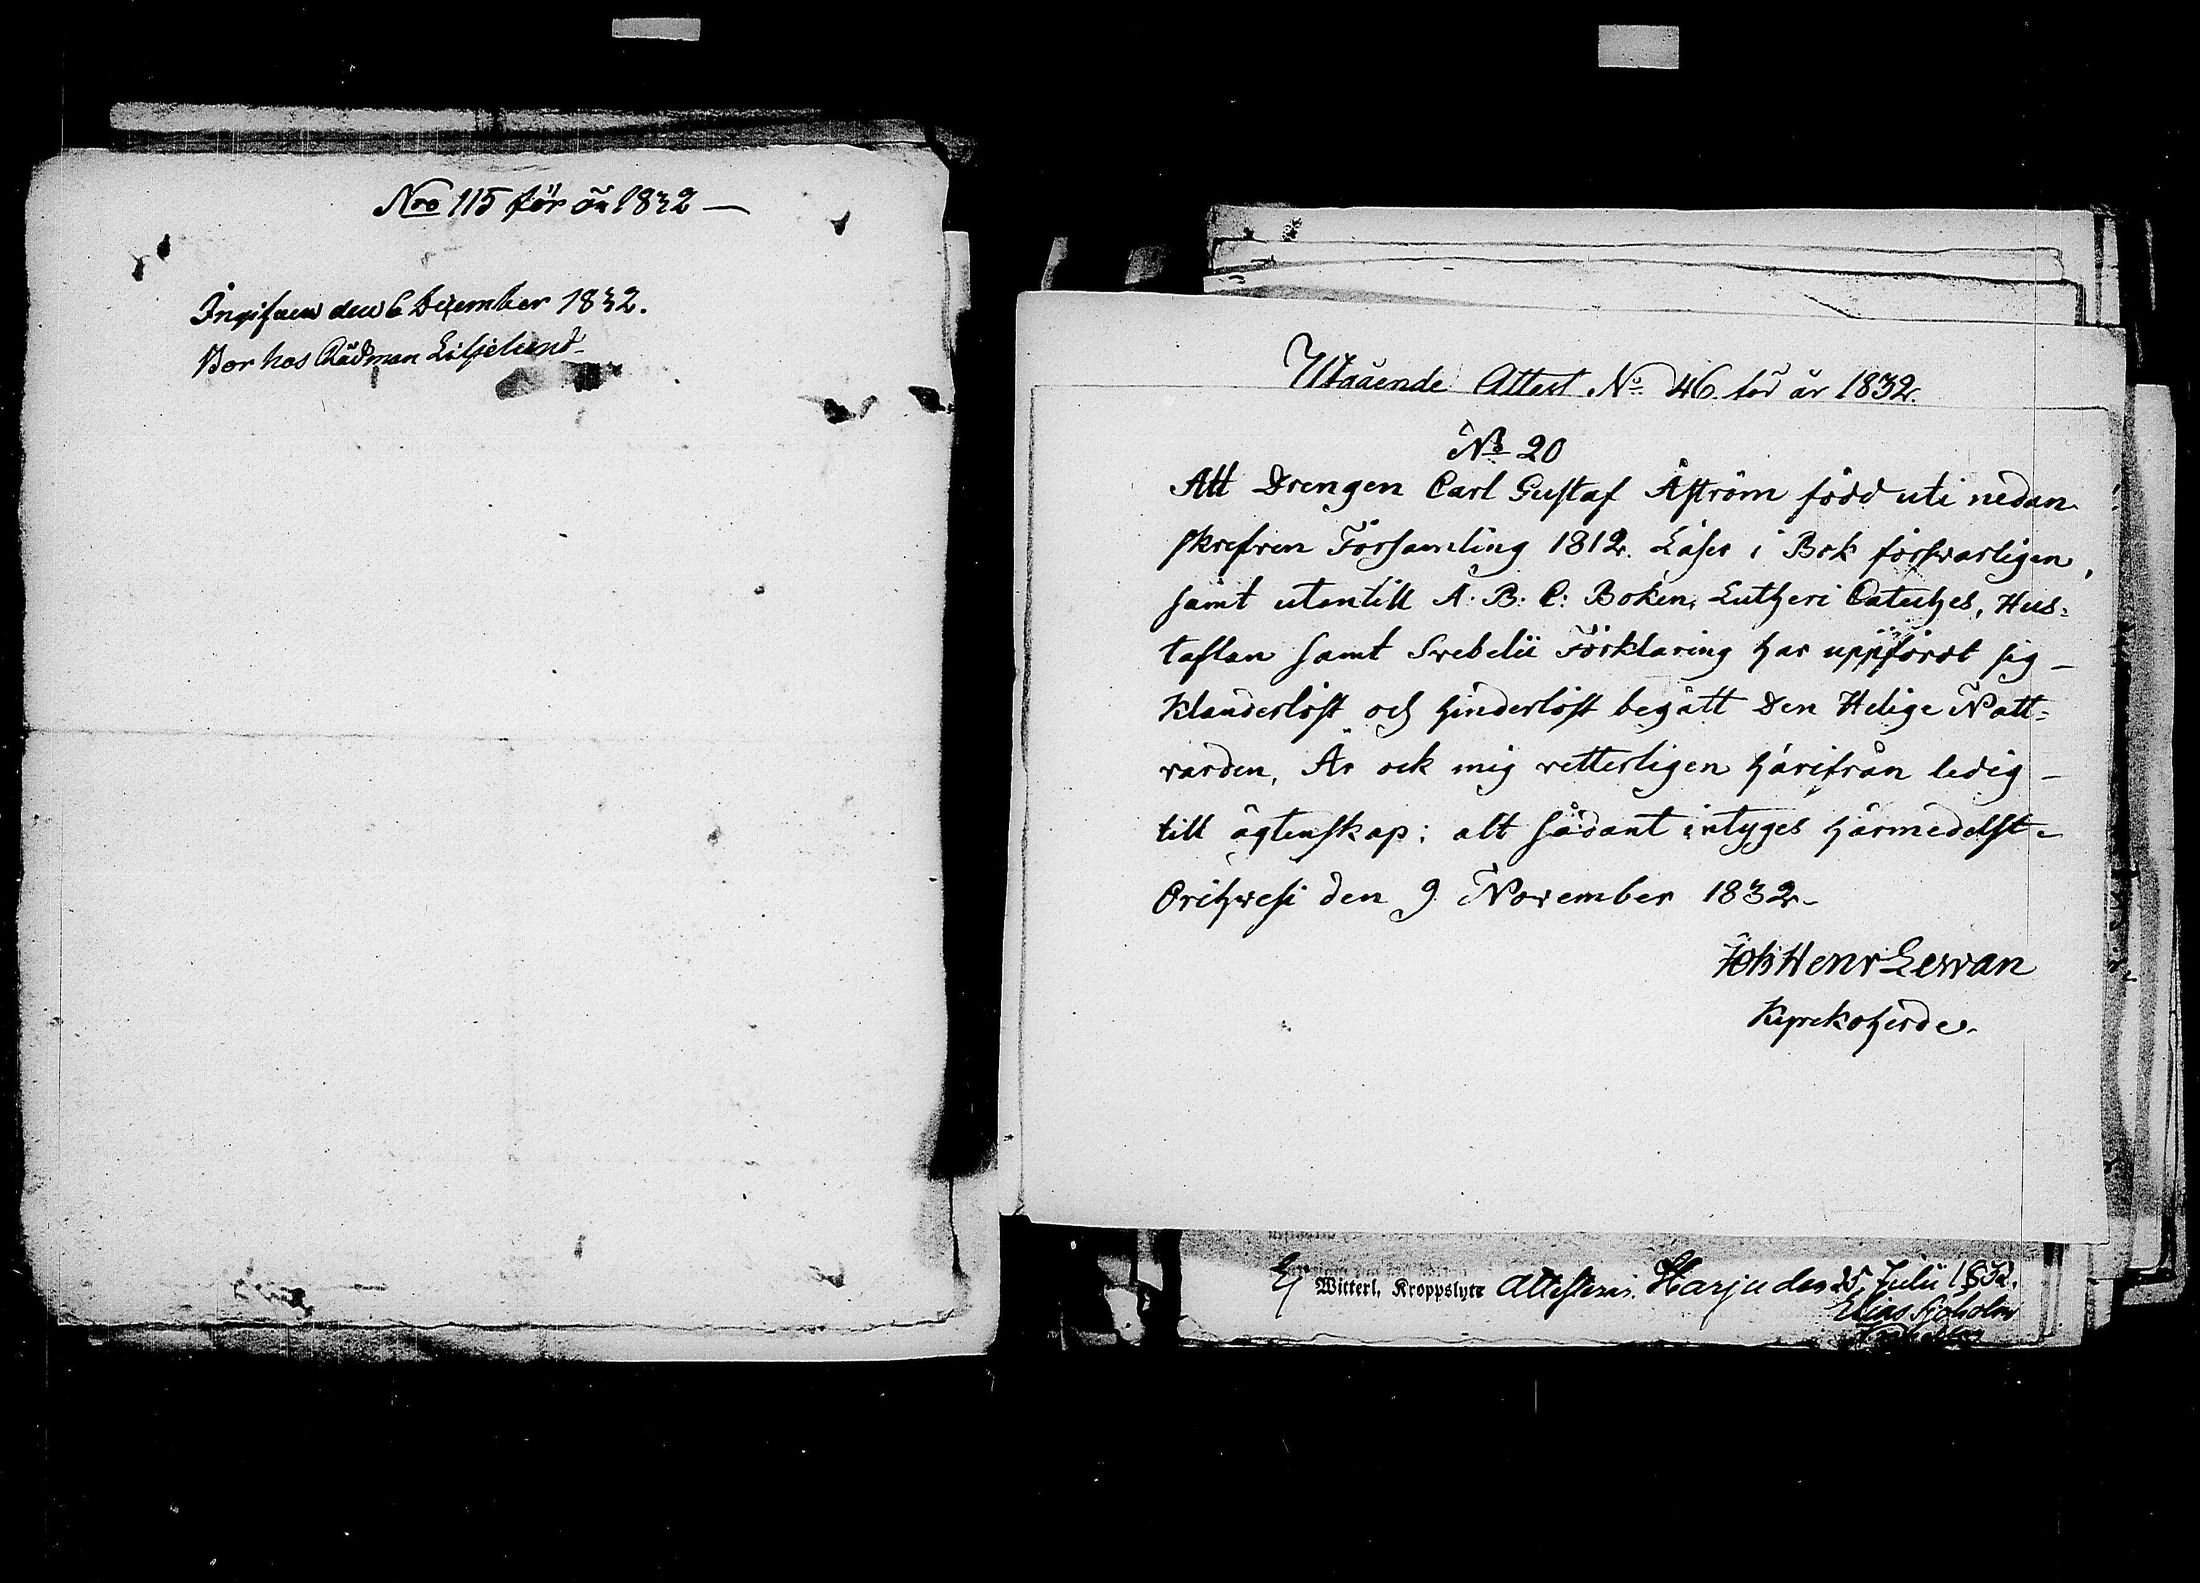 Nro 115 för år 1832 —
Ingifven den 6 December 1832.
Bor hos Rådman Liljelund
Utgående Attest No 46 för år 1832.
No 20
Att Drengen Carl Gustaf Åström född uti nedan
skrefven Församling 1812. Läser i Bok försvarligen,
samt utentill A. B. C: Boken, Lutheri Cateches, Hus-
taflan samt Svebelii Förklaring har uppfördt sig –
Klanderlöst och hinderlöst begått Den Helige Natt-
varden, Är ock mig vetterligen härifrån ledig –
till ägtenskap; alt sådant intyges härmedelst.
Orihvesi den 9 November 1832.
Joh Henr Levan
Kyrkoherde.
Ej Witterl. Kroppslyte Attesterar. Harju den 25 Julii 1832.
Elias